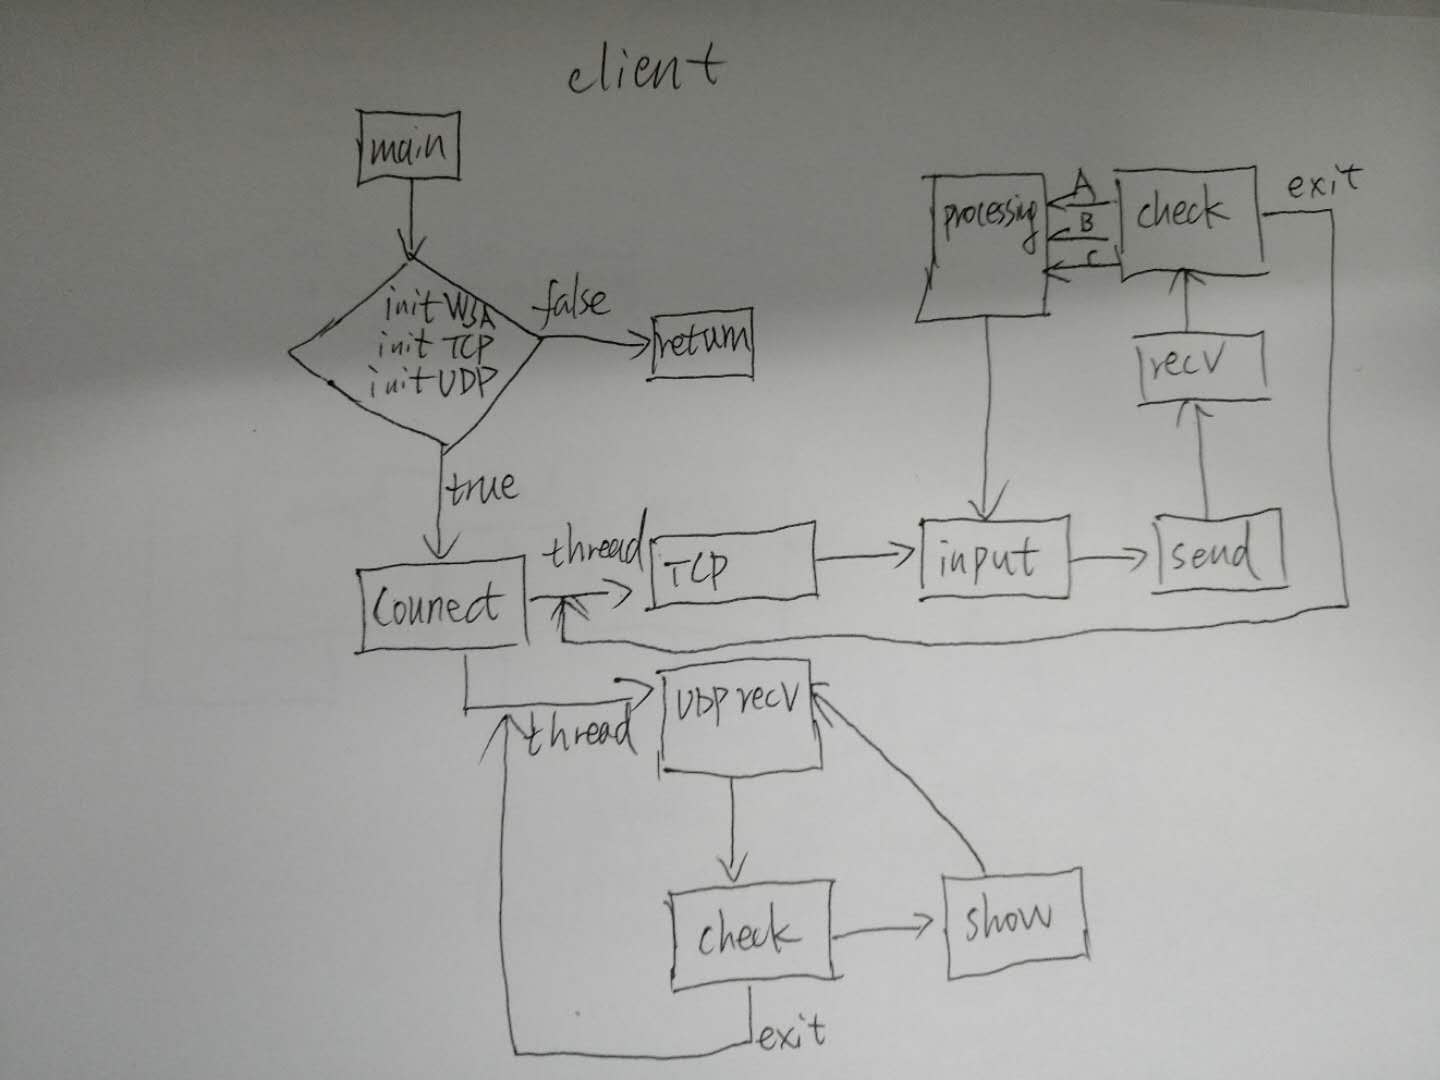 client
main
init WSA
init TCP
init UDP
false
return
true
Connect
thread
TCP
input
send
recv
check
exit
A
B
C
processing
thread
UDP recv
check
show
exit